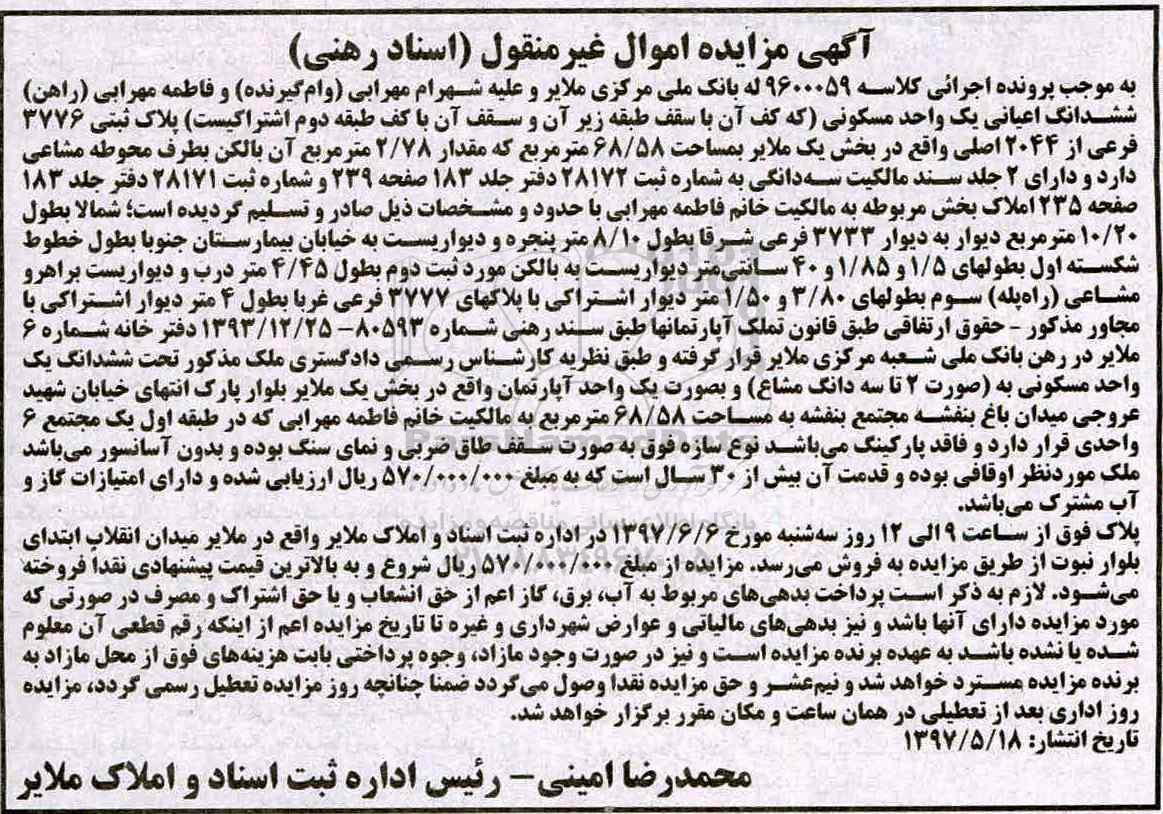 آگهی مزایده اموال غیرمنقول (اسناد رهنی)
به موجب پرونده اجرائی کلاسه ۹۶۰۰۰۵۹ له بانک ملی مرکزی ملایر و علیه شهرام مهرابی (وام‌گیرنده) و فاطمه مهرابی (راهن)
ششدانگ اعیانی یک واحد مسکونی (که کف آن با سقف طبقه زیر آن و سقف آن با کف طبقه دوم اشتراکیست) پلاک ثبتی ۳۷۷۶
فرعی از ۲۰۴۴ اصلی واقع در بخش یک ملایر بمساحت ۶۸/۵۸ مترمربع که مقدار ۲/۷۸ مترمربع آن بالکن بطرف محوطه مشاعی
دارد و دارای ۲ جلد سند مالکیت سه‌دانگی به شماره ثبت ۲۸۱۷۲ دفتر جلد ۱۸۳ صفحه ۲۳۹ و شماره ثبت ۲۸۱۷۱ دفتر جلد ۱۸۳
صفحه ۲۳۵ املاک بخش مربوطه به مالکیت خانم فاطمه مهرابی با حدود و مشخصات ذیل صادر و تسلیم گردیده است؛ شمالا بطول
۱۰/۲۰ مترمربع دیوار به دیوار ۳۷۳۳ فرعی شرقا بطول ۸/۱۰ متر پنجره و دیواریست به خیابان بیمارستان جنوبا بطول خطوط
شکسته اول بطولهای ۱/۵ و ۱/۸۵ و ۴۰ سانتی‌متر دیواریست به بالکن مورد ثبت دوم بطول ۴/۴۵ متر درب و دیواریست براهرو
مشاعی (راه‌پله) سوم بطولهای ۳/۸۰ و ۱/۵۰ متر دیوار اشتراکی با پلاکهای ۳۷۷۷ فرعی غربا بطول ۴ متر دیوار اشتراکی با
مجاور مذکور – حقوق ارتفاقی طبق قانون تملک آپارتمانها طبق سند رهنی شماره ۸۰۵۹۳ – ۱۳۹۳/۱۲/۲۵ دفتر خانه شماره ۶
ملایر در رهن بانک ملی شعبه مرکزی ملایر قرار گرفته و طبق نظریه کارشناس رسمی دادگستری ملک مذکور تحت ششدانگ یک
واحد مسکونی به (صورت ۲ تا سه دانگ مشاع) و بصورت یک واحد آپارتمان واقع در بخش یک ملایر بلوار پارک انتهای خیابان شهید
عروجی میدان باغ بنفشه مجتمع بنفشه به مساحت ۶۸/۵۸ مترمربع به مالکیت خانم فاطمه مهرابی که در طبقه اول یک مجتمع ۶
واحدی قرار دارد و فاقد پارکینگ می‌باشد نوع سازه فوق به صورت سقف طاق ضربی و نمای سنگ بوده و بدون آسانسور می‌باشد
ملک موردنظر اوقافی بوده و قدمت آن بیش از ۳۰ سال است که به مبلغ ۵۷۰/۰۰۰/۰۰۰ ریال ارزیابی شده و دارای امتیازات گاز و
آب مشترک می‌باشد.
پلاک فوق از ساعت ۹ الی ۱۲ روز سه‌شنبه مورخ ۱۳۹۷/۶/۶ در اداره ثبت اسناد و املاک ملایر واقع در ملایر میدان انقلاب ابتدای
بلوار نبوت از طریق مزایده به فروش می‌رسد. مزایده از مبلغ ۵۷۰/۰۰۰/۰۰۰ ریال شروع و به بالاترین قیمت پیشنهادی نقداً فروخته
می‌شود. لازم به ذکر است پرداخت بدهی‌های مربوط به آب، برق، گاز اعم از حق انشعاب و یا حق اشتراک و مصرف در صورتی که
مورد مزایده دارای آنها باشد و نیز بدهی‌های مالیاتی و عوارض شهرداری و غیره تا تاریخ مزایده اعم از اینکه رقم قطعی آن معلوم
شده یا نشده باشد به عهده برنده مزایده است و نیز در صورت وجود مازاد، وجوه پرداختی بابت هزینه‌های فوق از محل مازاد به
برنده مزایده مسترد خواهد شد و نیم‌عشر و حق مزایده نقدا وصول می‌گردد ضمنا چنانچه روز مزایده تعطیل رسمی گردد، مزایده
روز اداری بعد از تعطیلی در همان ساعت و مکان مقرر برگزار خواهد شد.
تاریخ انتشار: ۱۳۹۷/۵/۱۸
محمدرضا امینی – رئیس اداره ثبت اسناد و املاک ملایر